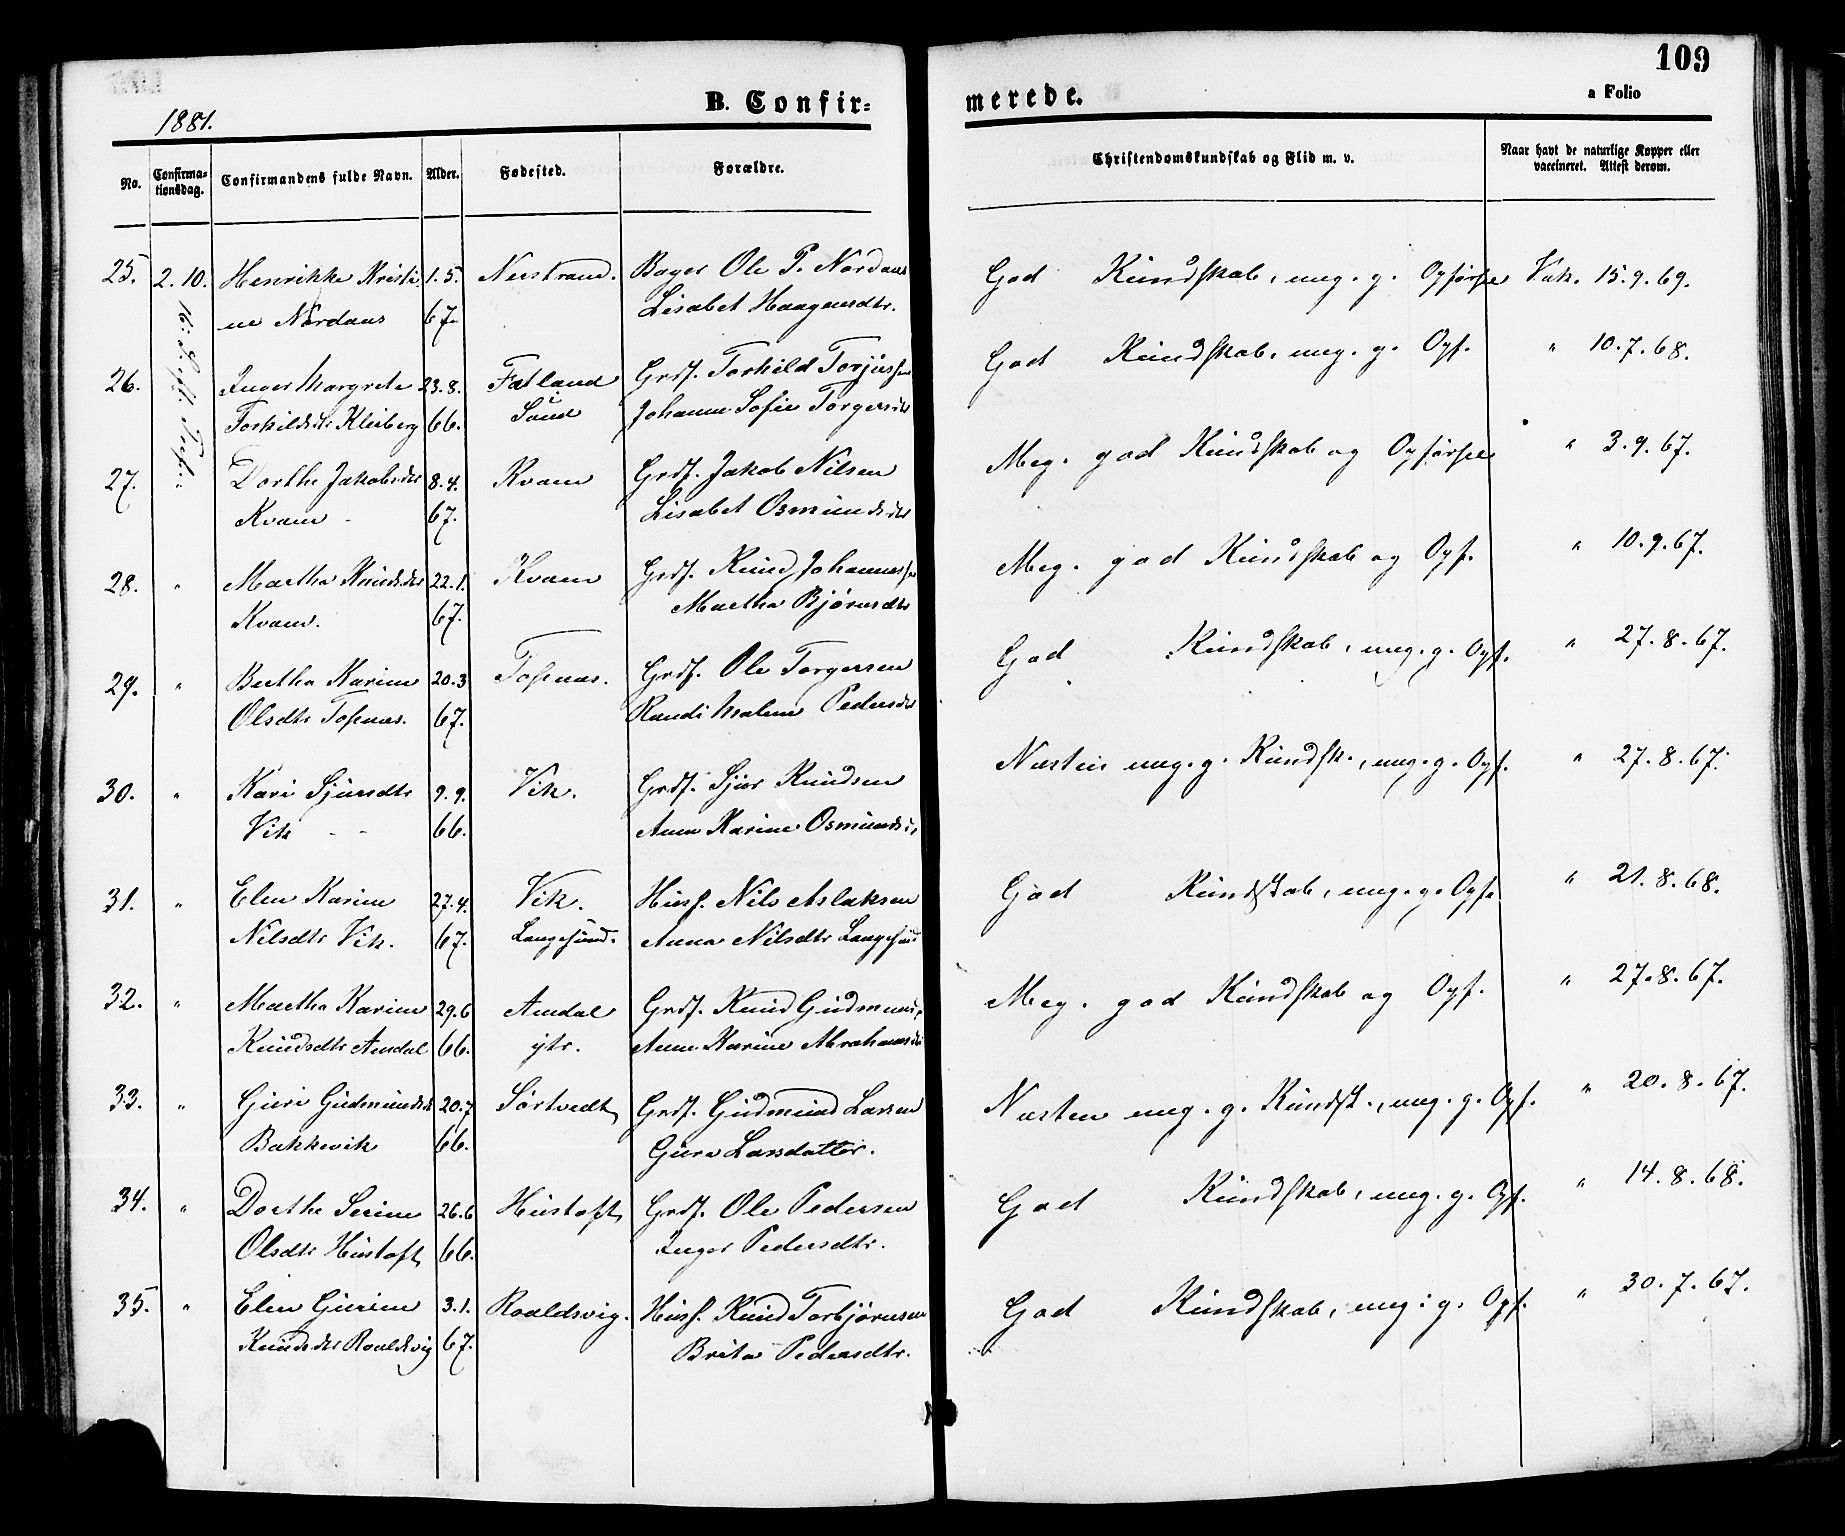 109
B. Confir= merede.
a Folio
1881.
No. Confirma=tionsdag. Confirmandens fulde Navn. Alder. Fødested. Forældre. Christendomskundskab og Flid m. v. Naar havt de naturlige Kopper eller vaccineret. Attest derom.
25. 2.10. Henrikke Kristi 1.5. Nerstrand. Bager Ole P. Nordaas God Kundskab, meg. g. Opførsel Vak. 15.9.69.
ne Nordaas 67. Lisabet Haagensdtr.
26. Inger Margrete 23.8. Fatland Grdf. Torkild Torjussen God Kundskab, meg. g. Opf. " 10.7.68.
Torkildsdtr Kleiberg 66. Sund Johanne Sofie Torgersdtr
27. " Dorthe Jakobsdtr 8.4. Kvam Grdf. Jakob Nilsen Meg. god Kundskab og Opførsel " 3.9.67.
Kvam - 67. Lisabet Osmundsdtr
28. " Martha Knudsdtr 22.1. Kvam Grdf. Knud Johannessen Meg. god Kundskab og Opf. " 10.9.67.
Kvam. 67. Martha Bjørnsdtr
29. " Bertha Karine 20.3 Tosnæs. Grdf. Ole Torgersen God Kundskab, meg. g. Opf. " 27.8.67.
Olsdtr Tosnæs. 67. Randi Malene Pedersdtr
30. " Kari Sjursdtr 9.9. Vik. Grdf. Sjur Knudsen Næsten meg. g. Kundsk., meg. g. Opf. " 27.8.67.
Vik - - 66. Anna Karine Osmundsd.
31. " Elen Karine 27.4. Vik. Husf. Nils Aslaksen God Kundskab, meg. g. Opf. " 21.8.68.
Nilsdtr Vik. 67. Langesund. Anna Nilsdtr Langesund
32. " Martha Karine 29.6 Amdal Grdf. Knud Gudmunds. Meg. god Kundskab og Opf. " 27.8.67.
Knudsdtr Amdal 66. ytr. Anne Karine Abrahamsdtr
33. " Guri Gudmundsdtr 20.7 Sørtvedt Grdf. Gudmund Larsen Næsten meg. g. Kundsk., meg. g. Opf. " 20.8.67.
Bakkevik 66. Guro Larsdatter.
34. " Dorthe Serine 26.6 Hustoft Grdf. Ole Pedersen God Kundskab, meg. g. Opf. " 14.8.68.
Olsdtr Hustoft 66. Inger Pedersdtr.
35. " Elen Gurine 3.1. Roaldsvig. Husf. Knud Torbjørnsen God Kundskab, meg. g. Opf. " 30.7.67.
Knudsdtr Roaldsvig 67. Brita Pedersdtr.